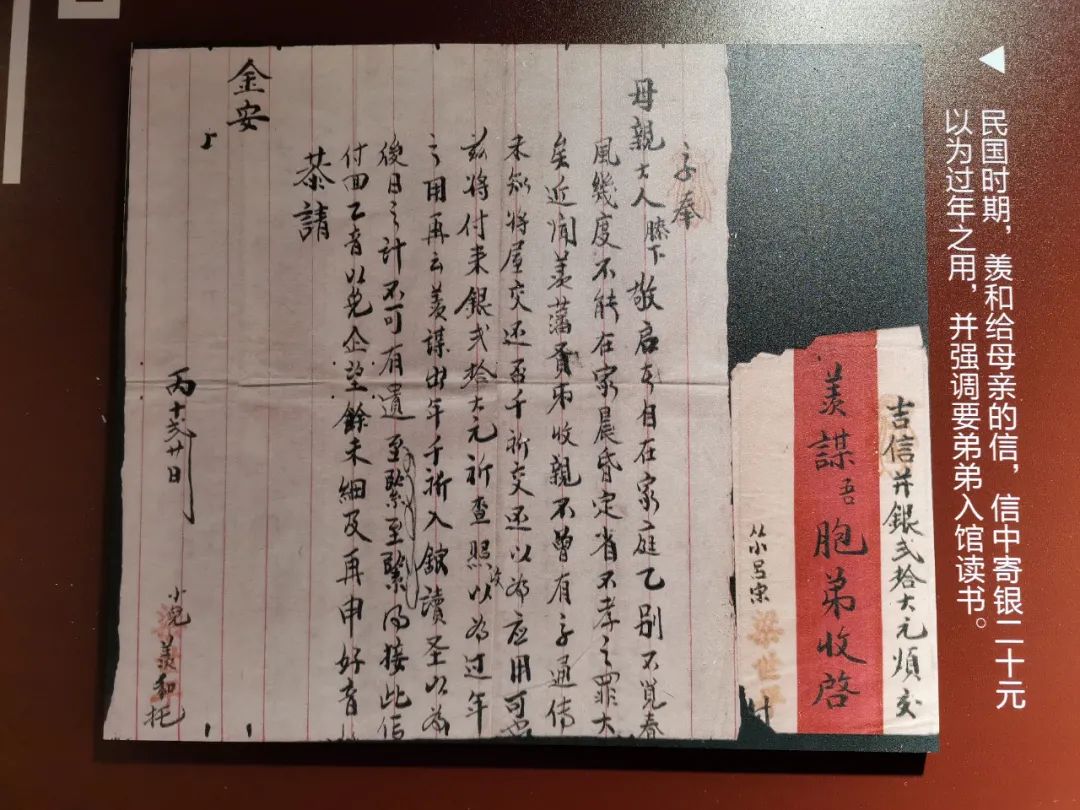 民国时期，羡和给母亲的信，信中寄银二十元
以为过年之用，并强调要弟弟入馆读书。
吉信并銀弍拾大元煩交
羨謀吾胞弟收啓
从小呂宋 梁世 付
字奉
母親大人膝下敬启者自在家庭乙别不覚春
風幾度不能在家晨昏定省不孝之罪大
矣近闻羨藩 收親不曾有字通傳
未知将屋交还否千祈交还以為应用可也
兹将付来銀弍拾大元祈查照收以为过年
之用再云羨謀出年千祈入舘讀圣以為
後日之计不可有遺至緊至緊如接此信
付回乙音以免企望餘未細及再申好音
恭請
金安
丙十弍廿日
小児羨和托